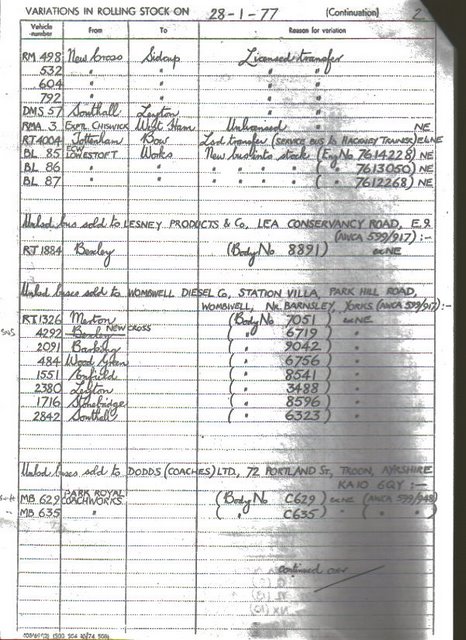 VARIATIONS IN ROLLING STOCK ON 28-1-77 (Continuation) 2
Vehicle number From To Reason for variation
RM 498 New Cross Sidcup Licensed transfer
532 " " " "
604 " " " "
792 " " " "
DMS 57 Southall Leyton " "
RMA 3 EXPTL. CHISWICK West Ham Unlicensed NE
RT4004 Tottenham Bow Lsd transfer (SERVICE BUS to HACKNEY TRAINER) ELNE
BL 85 ECW LOWESTOFT Works New bus into stock (Eng No 7614228) NE
BL 86 " " " " " " ( " 7613050) NE
BL 87 " " " " " " ( " 7612268) NE
Unlsd bus sold to LESNEY PRODUCTS & Co, LEA CONSERVANCY ROAD, E.9.
(AWCA 599/917) :-
RT 1884 Bexley (Body No 8891) exNE
Unlsd buses sold to WOMBWELL DIESEL Co, STATION VILLA, PARK HILL ROAD,
WOMBWELL, Nr. BARNSLEY, YORKS (AWCA 599/917) :-
RT1326 Merton (Body No 7051) exNE
4292 Bexley NEW CROSS ( " 6719) "
2091 Barking ( " 9042) "
484 Wood Green ( " 6756) "
1551 Enfield ( " 8541) "
2380 Leyton ( " 3488) "
1716 Stonebridge ( " 8596) "
2842 Southall ( " 6323) "
Unlsd buses sold to DODDS (COACHES) LTD., 72 PORTLAND ST, TROON, AYRSHIRE
KA10 6QY :-
MB 629 PARK ROYAL COACHWORKS (Body No C629) exNE (AWCA 599/948)
MB 635 " ( " C635) " ( " )
continued over